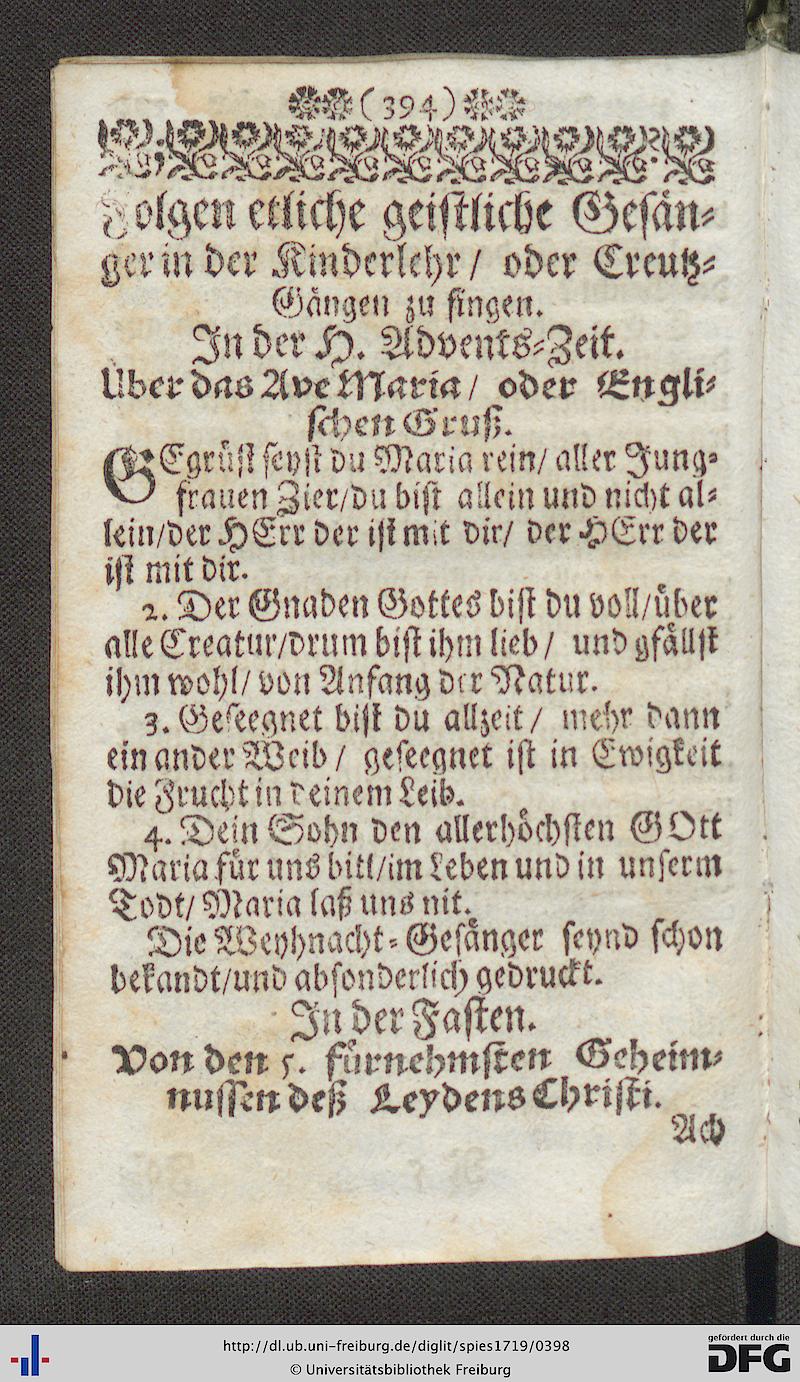 (394)
Folgen etliche geistliche Gesän-
ger in der Kinderlehr/ oder Creutz-
Gängen zu singen.
In der H. Advents-Zeit.
Uber das Ave Maria/ oder Engli-
schen Gruß.
GEgrüst seyst du Maria rein/ aller Jung-
frauen Zier/du bist allein und nicht al-
lein/der HErr der ist mit dir/ der HErr der
ist mit dir.
2. Der Gnaden Gottes bist du voll/über
alle Creatur/drum bist ihm lieb/ und gfällst
ihm wohl/ von Anfang der Natur.
3. Geseegnet bist du allzeit/ mehr dann
ein ander Weib/ geseegnet ist in Ewigkeit
die Frucht in deinem Leib.
4. Dein Sohn den allerhöchsten GOtt
Maria für uns bitt/im Leben und in unserm
Todt/ Maria laß uns nit.
Die Weyhnacht-Gesänger seynd schon
bekandt/und absonderlich gedruckt.
In der Fasten.
Von den 5. fürnehmsten Geheim-
nussen deß Leydens Christi.
Ach
http://dl.ub.uni-freiburg.de/diglit/spies1719/0398
© Universitätsbibliothek Freiburg
gefördert durch die
DFG